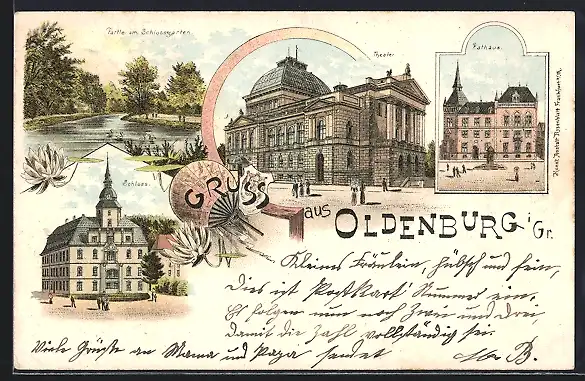 Partie im Schlossgarten.
Theater
Rathaus.
Schloss.
GRUSS
aus OLDENBURG i/Gr.
Kleines Fräulein, hübsch und fein,
Dies ist Postkart' Nummer ein.
Es folgen nun noch Zwei und Drei,
damit die Zahl vollständig sei.
Viele Grüsse an Mama und Papa sendet B.